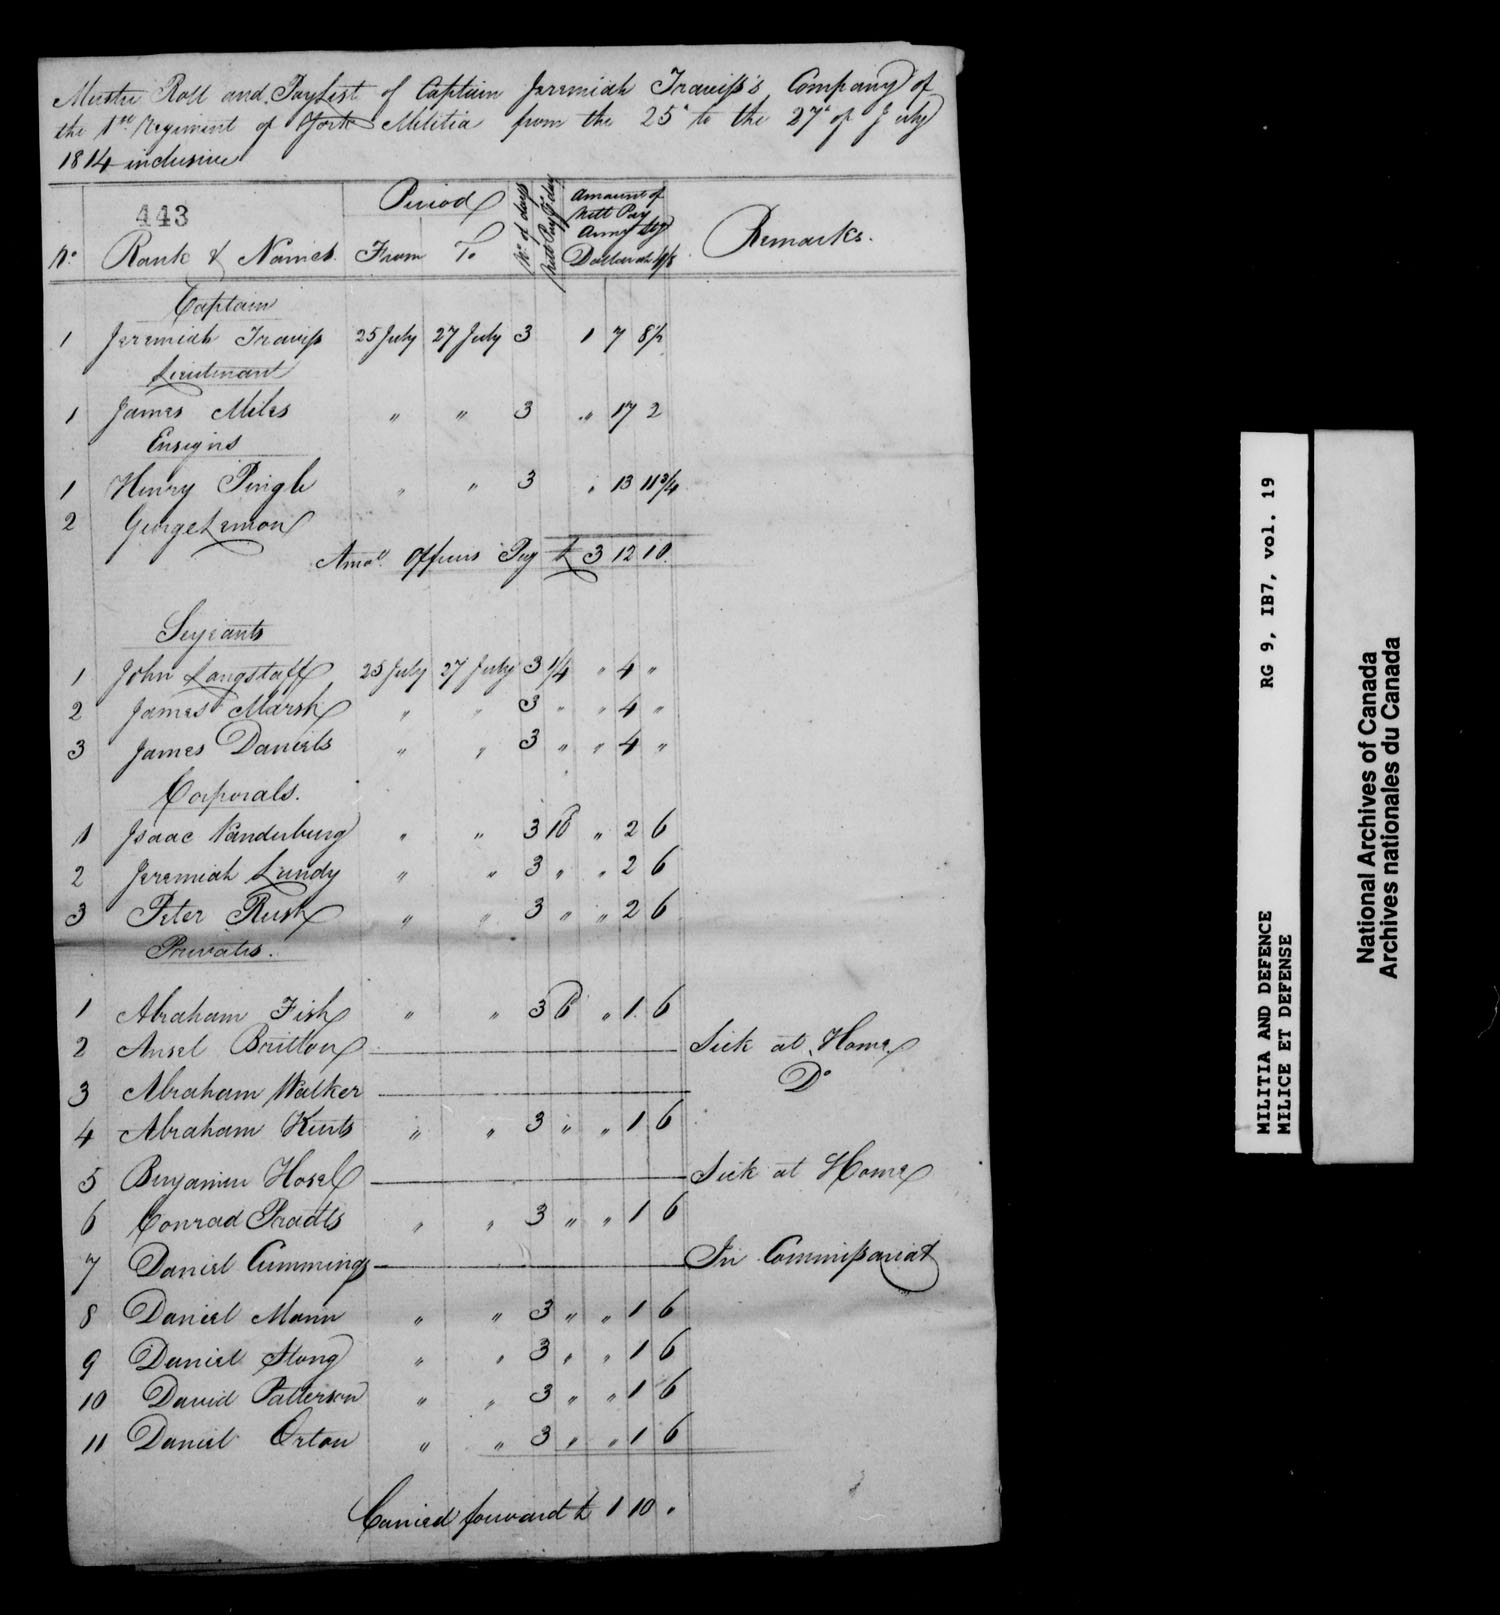 Muster Roll and PayList of Captain Jeremiah Traviss's Company of
the 1st Regiment of York Militia from the 25th to the 27th of July
1814 inclusive
443
No. Rank & Names Period From To No. of days Nett Pay Pr day Amount of Nett Pay Army Stg Dollar at 4/8 Remarks.
Captain
1 Jeremiah Traviss 25 July 27 July 3 1 7 8½
Lieutenant
1 James Miles " " 3 " 17 2
Ensigns
1 Henry Pingle " " 3 " 13 11¾
2 George Lemon
Amot. Officers Pay £ 3 12 10
Serjeants
1 John Langstaff 25 July 27 July 3 1/4 " 4 "
2 James Marsh " " 3 " " 4 "
3 James Daniels " " 3 " " 4 "
Corporals.
1 Isaac Vanderburg " " 3 10 " 2 6
2 Jeremiah Lundy " " 3 " " 2 6
3 Peter Rush " " 3 " " 2 6
Privates.
1 Abraham Fish " " 3 6 " 1 6
2 Ansel Britton Sick at Home
3 Abraham Walker Do
4 Abraham Kurts " " 3 " " 1 6
5 Benjamin Hosel Sick at Home
6 Conrad " " 3 " " 1 6
7 Daniel Cummings In Commissariat
8 Daniel Mann " " 3 " " 1 6
9 Daniel Stong " " 3 " " 1 6
10 David Patterson " " 3 " " 1 6
11 Daniel Orton " " 3 " " 1 6
Carried forward £ 1 10 "
MILITIA AND DEFENCE RG 9, IB7, vol. 19
MILICE ET DEFENSE
National Archives of Canada
Archives nationales du Canada